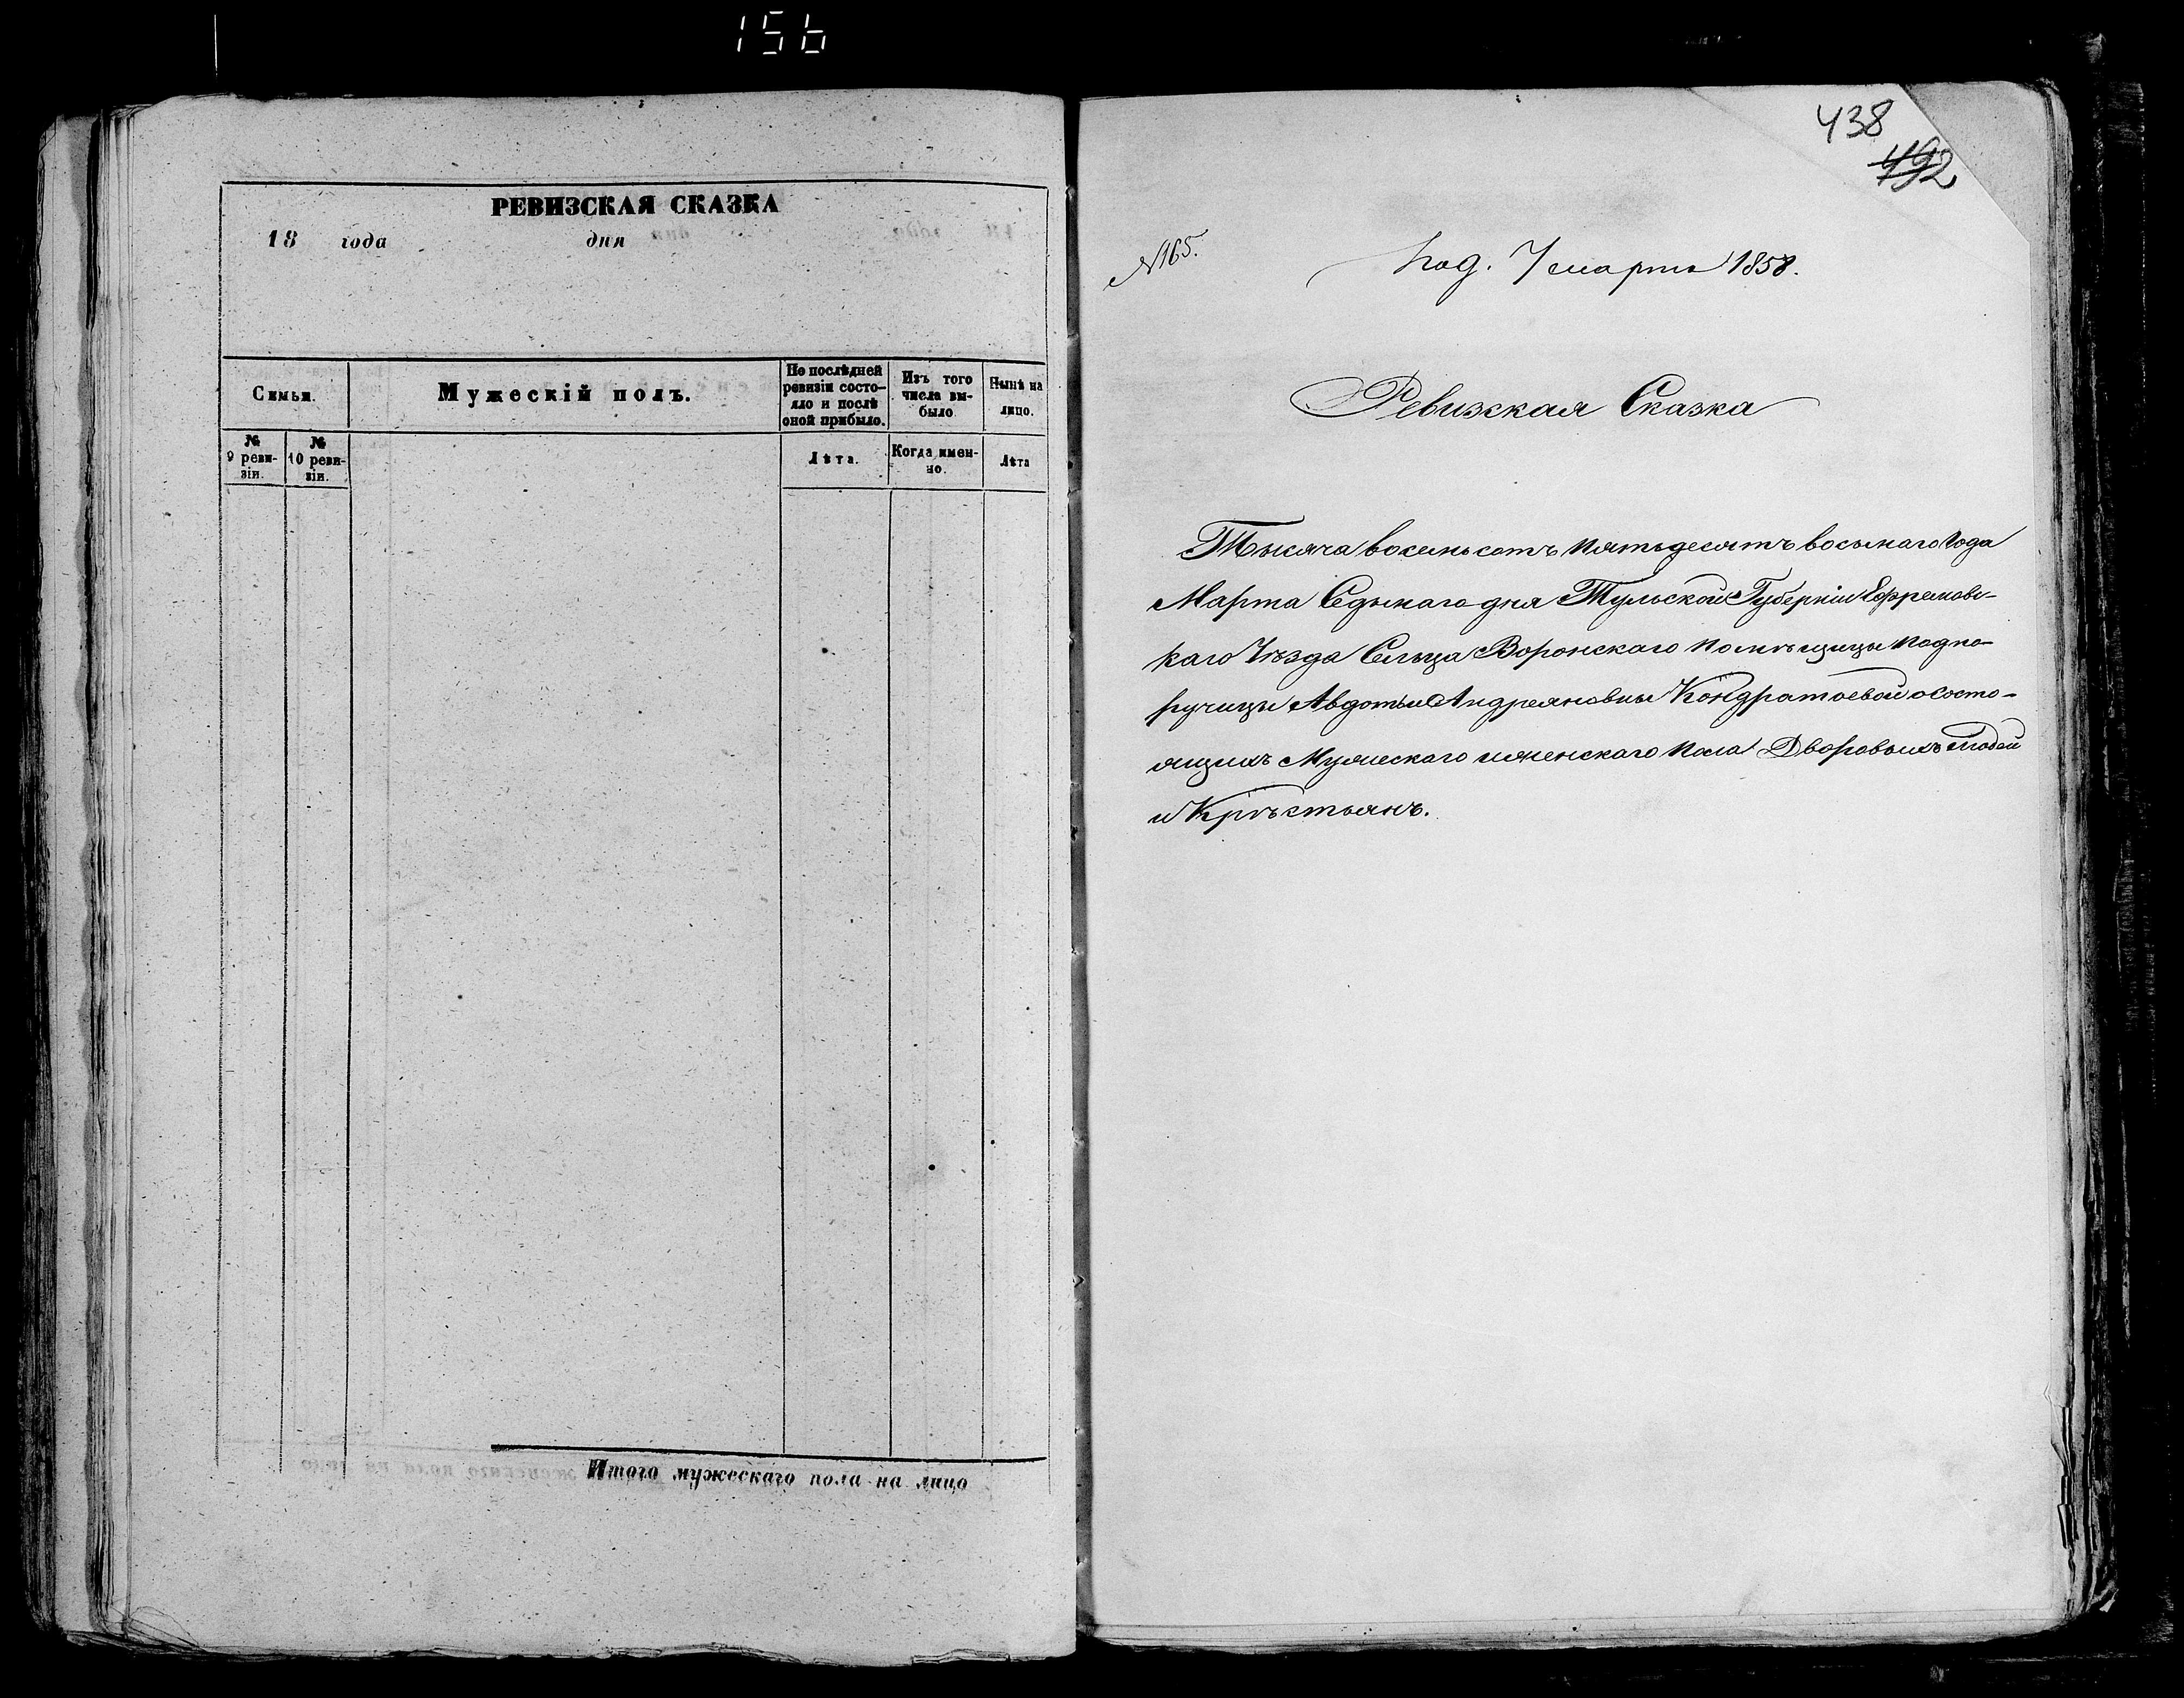 156
РЕВИЗСКАЯ СКАЗКА
18 года дня
Семьи.
Мужескій полъ.
По послѣдней
ревизіи состо-
яло и послѣ
оной прибыло.
Изъ того
числа вы-
было
Нынѣ на
лицо.
№
9 реви-
зіи.
№
10 реви-
зіи.
Лѣта.
Когда имен-
но.
Лѣта
Итого мужескаго пола на лицо
438
492
№165.
Под. 7 марта 1858.
Ревизская Сказка
Тысяча восемьсотъ пятьдесятъ восьмаго года
Марта Седьмаго дня Тульской Губерніи Ефремовс-
каго Уѣзда Сельца Воронскаго помѣщицы подпо-
ручицы Авдотьи Андреяновны Кондратьевой о состо-
ящихъ Мужескаго и женскаго пола Дворовыхъ людей
и Крѣстьянъ.